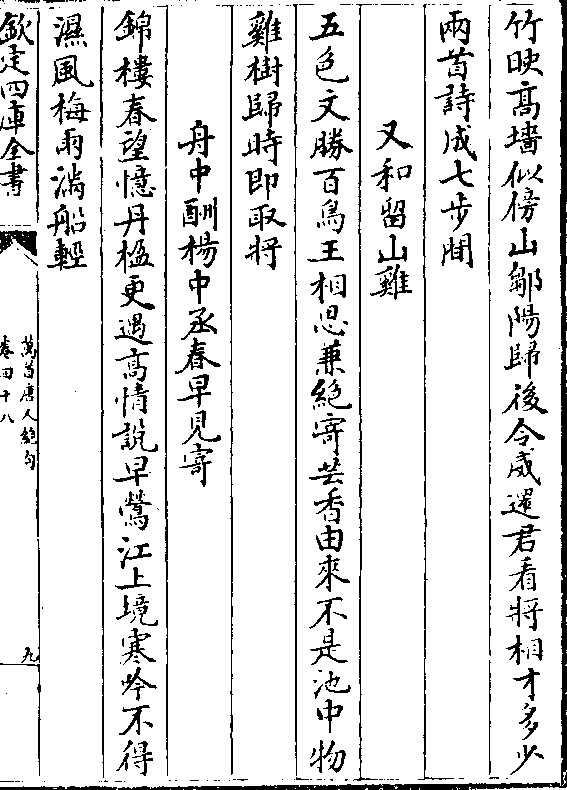 竹映高墻似傍山鄒陽歸後令威還君看將相才多少
兩首詩成七步間
又和留山雞
五色文勝百鳥王相思兼絶寄芸香由來不是池中物
雞樹歸時即取將
舟中酬楊中丞春早見寄
錦樓春望憶丹楹更遇高情說早鶯江上境寒吟不得
濕風梅雨滿船輕
欽定四庫全書
萬首唐人絶句
卷四十八
九